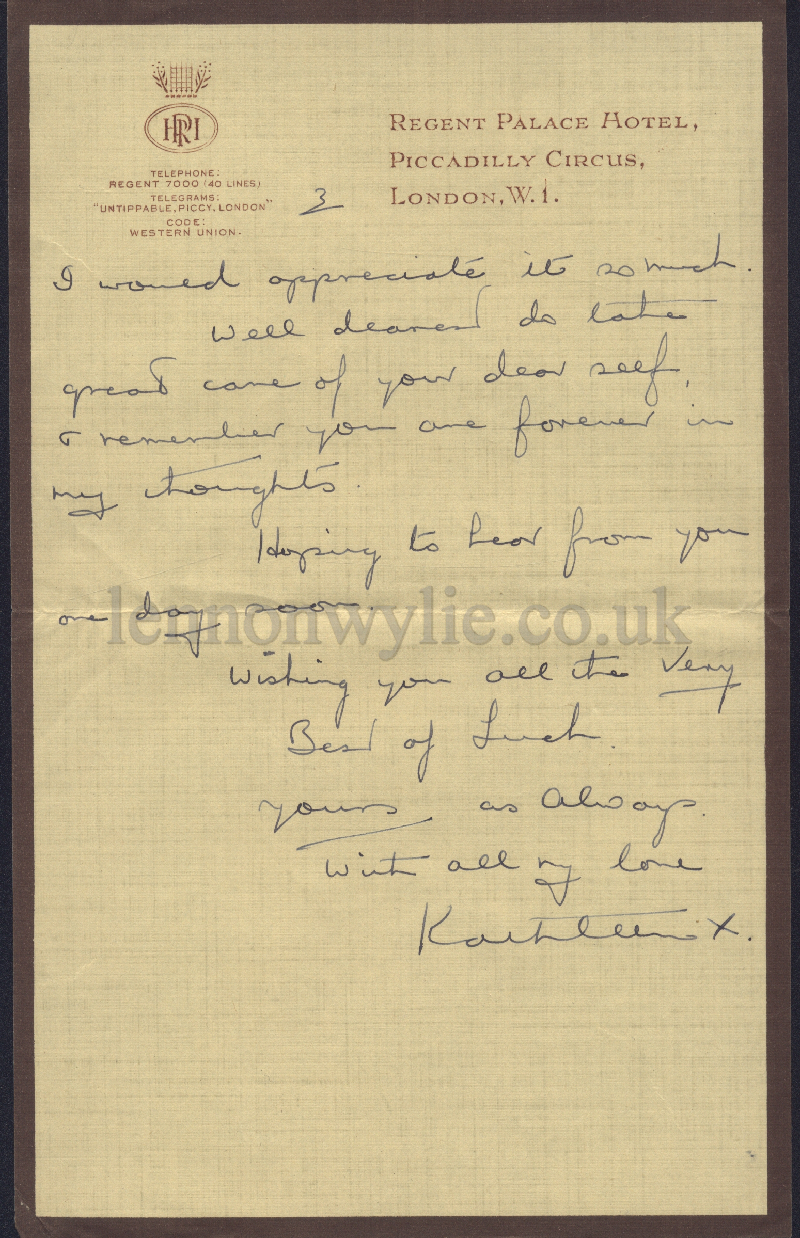 RPH
TELEPHONE:
REGENT 7000 (40 LINES)
TELEGRAMS:
"UNTIPPABLE, PICCY, LONDON"
CODE:
WESTERN UNION.
REGENT PALACE HOTEL,
PICCADILLY CIRCUS,
LONDON, W.1.
3
I would appreciate it so much.
Well dearest do take
great care of your dear self,
& remember you are forever in
my thoughts.
Hoping to hear from you
one day soon.
lennonwylie.co.uk
Wishing you all the Very
Best of Luck.
yours as Always.
With all my love
Kathleen X.